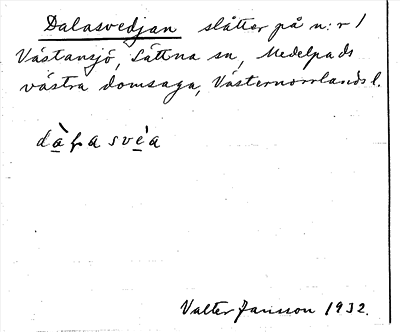 Dalasvedjan slåtter på n:r 1
Västansjö, Lättna sn, Medelpads
västra domsaga, Västernorrlands l.
Valter Jansson 1932.